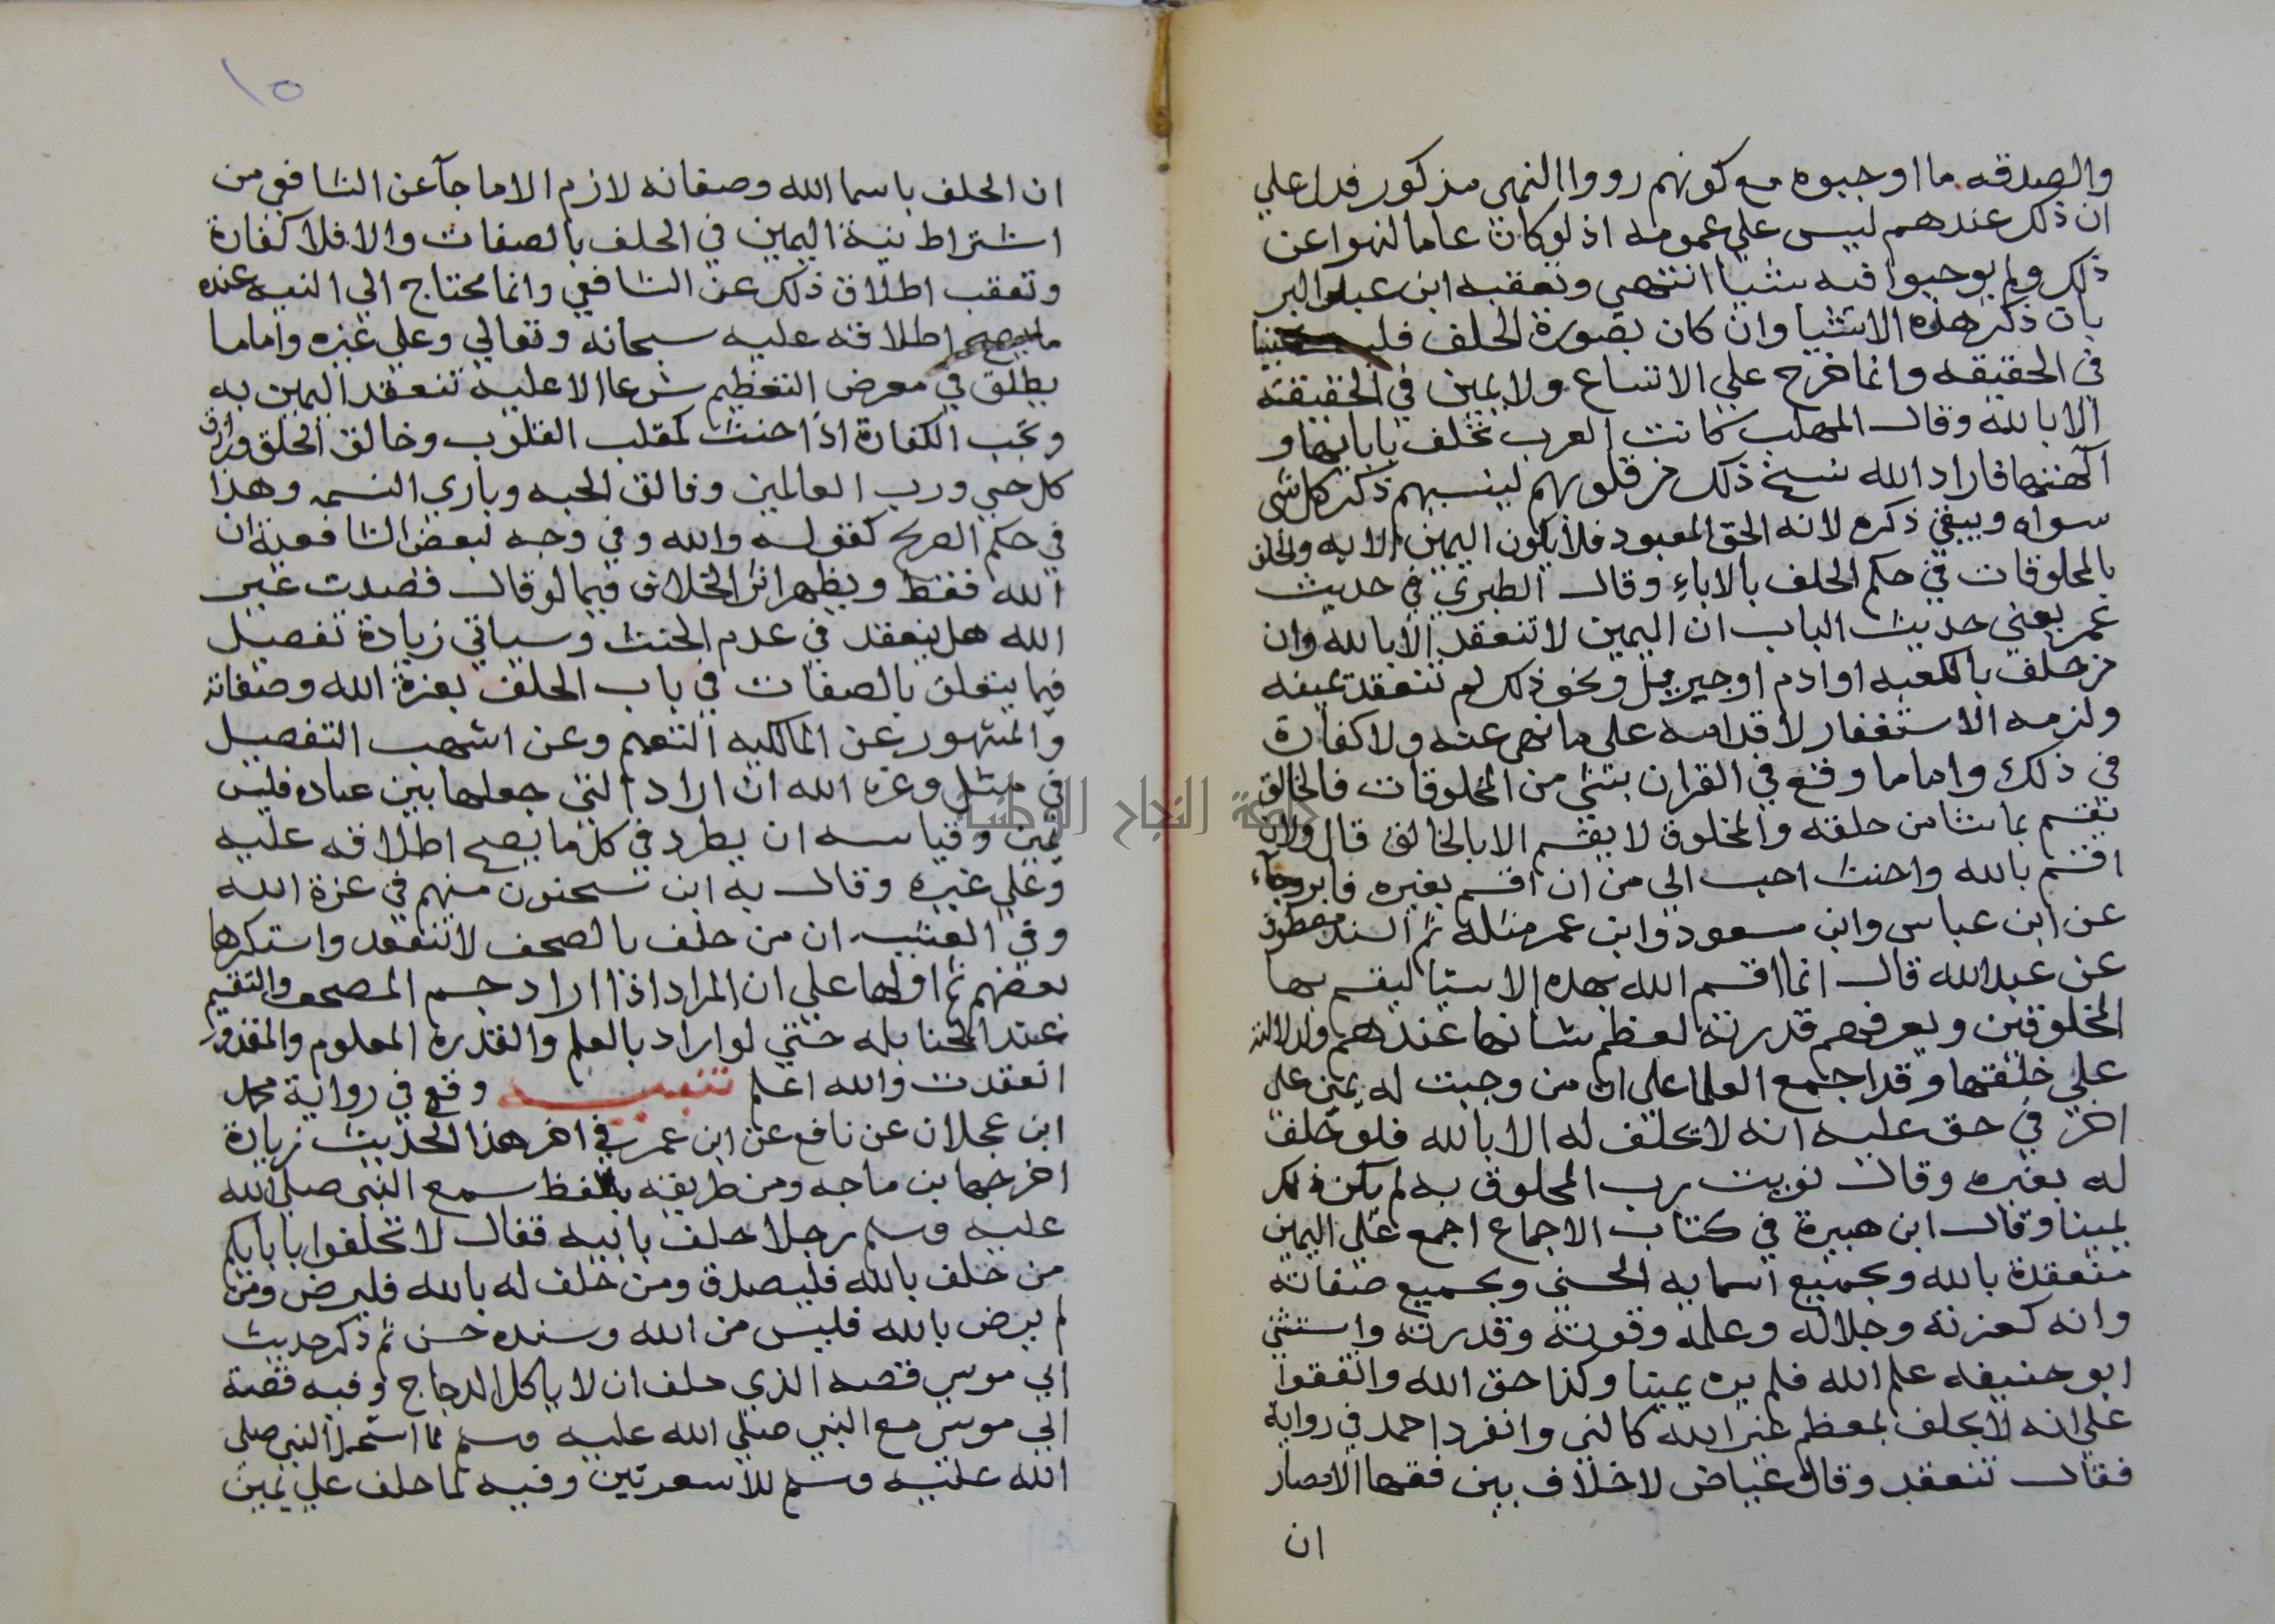 والصدقه ما اوجبوه مع كونهم رووا النهى مذكور فدل علي
ان ذلك عندهم ليس علي عمومه اذ لو كان عاما لنهوا عن
ذلك ولم يوجبوا فيه شيا انتهي وتعقبه ابن عبد البر
بان ذكر هذه الاشيا وان كان بصورة الحلف فليست يمينا
في الحقيقه وانما خرج علي الاتساع ولا يمين في الحقيقة
الا بالله وقال المهلب كانت العرب تحلف بابايها و
آلهتها فاراد الله نسخ ذلك من قلوبهم لينسيهم ذكر كل شى
سواه ويبقي ذكره لانه الحق المعبود فلا يكون اليمين الا به والحلف
بالمخلوقات في حكم الحلف بالاباء وقال الطبري في حديث
عمر يعني حديث الباب ان اليمين لا تنعقد الا بالله وان
من حلف بالكعبه او ادم او جبريل ونحو ذلك لم تنعقد يمينه
ولزمه الاستغفار لاقدامه علي ما نهى عنه ولا كفارة
في ذلك واما ما وقع في القران بشي من المخلوقات فالخالق
يقسم بما شا من خلقه والمخلوق لا يقسم الا بالخالق قال ولان
اقسم بالله واحنث احب الى من ان اقسم بغيره فابر وجاء
عن ابن عباس وابن مسعود وابن عمر مثله ثم اسند مطرف
عن عبد الله قال انما اقسم الله بهذه الاشيا ليقسم بها
المخلوقين ويعرفهم قدرته لعظم شانها عندهم ولدلالته
علي خلقتها وقد اجمع العلما علي ان من وجبت له يمين علي
اخر في حق عليه انه لا تحلف له الا بالله فلو حلف
له بغيره وقال نويت رب المحلوف به لم يكن ذلك
يمينا وقال ابن هبيرة في كتاب الاجماع اجمع علي اليمين
منعقدة بالله وبجميع اسمايه الحسنى وبجميع صفاته
وانه كعزته وجلاله وعلمه وقوته وقدرته واستثني
ابو حنيفه علم الله فلم يره يمينا وكذا حق الله واتفقوا
علي انه لا يحلف بمعظم غير الله كالنبي وانفرد احمد في رواية
فقال تنعقد وقال عياض لا خلاف بين فقها الامصار
ان
١٥
ان الحلف باسما الله وصفاته لازم الا ما جآ عن الشافعي من
اشتراط نية اليمين في الحلف بالصفات والا فلا كفارة
وتعقب اطلاق ذلك عن الشافعي وانما يحتاج الي النيه عنده
ما يصح اطلاقه عليه سبحانه وتعالي وعلي غيره واما ما
يطلق في معرض التعظيم شرعا الا عليه تنعقد اليمين به
وتجب الكفارة اذا حنث كمقلب القلوب وخالق الخلق ورازق
كل حي ورب العالمين وفالق الحبه وباري النسمه وهذا
في حكم الصريح كقوله والله وفي وجه لبعض الشافعية ان
الله فقط ويظهر اثر الخلاف فيما لو قال قصدت غير
الله هل ينعقد في عدم الحنث وسياتي زيادة تفصيل
فيما يتعلق بالصفات في باب الحلف بعزة الله وصفاته
والمشهور عن المالكيه التعميم وعن اشهب التفصيل
في مثل وعزه الله ان اراد التي جعلها بين عباده فليس
يمين وقياسه ان يطرد في كل ما يصح اطلاقه عليه
وعلي غيره وقال به ابن سحنون منهم في عزة الله
وفي العتبيه ان من حلف بالمصحف لا تنعقد واستنكرها
بعضهم ثم اولها علي ان المراد اذا اراد جسم المصحف والتقيم
عند الحنابله حتي لو اراد بالعلم والقدره المعلوم والمقدور
انعقدت والله اعلم تنبيه وقع في رواية محمد
ابن عجلان عن نافع عن ابن عمر في اخر هذا الحديث زيادة
اخرجها بن ماجه ومن طريقه بلفظ سمع النبي صلى الله
عليه وسلم رجلا حلف بابيه فقال لا تحلفوا بابايكم
من حلف بالله فليصدق ومن حلف له بالله فليرض ومن
لم يرض بالله فليس من الله وسنده حسن ثم ذكر حديث
ابي موسي قصه الذي حلف ان لا ياكل الدجاج وفيه قصة
ابي موسي مع النبي صلي الله عليه وسلم لما استحمل النبي صلى
الله عليه وسلم للاشعريين وفيه لما حلف علي يمين
جامعة النجاح الوطنية